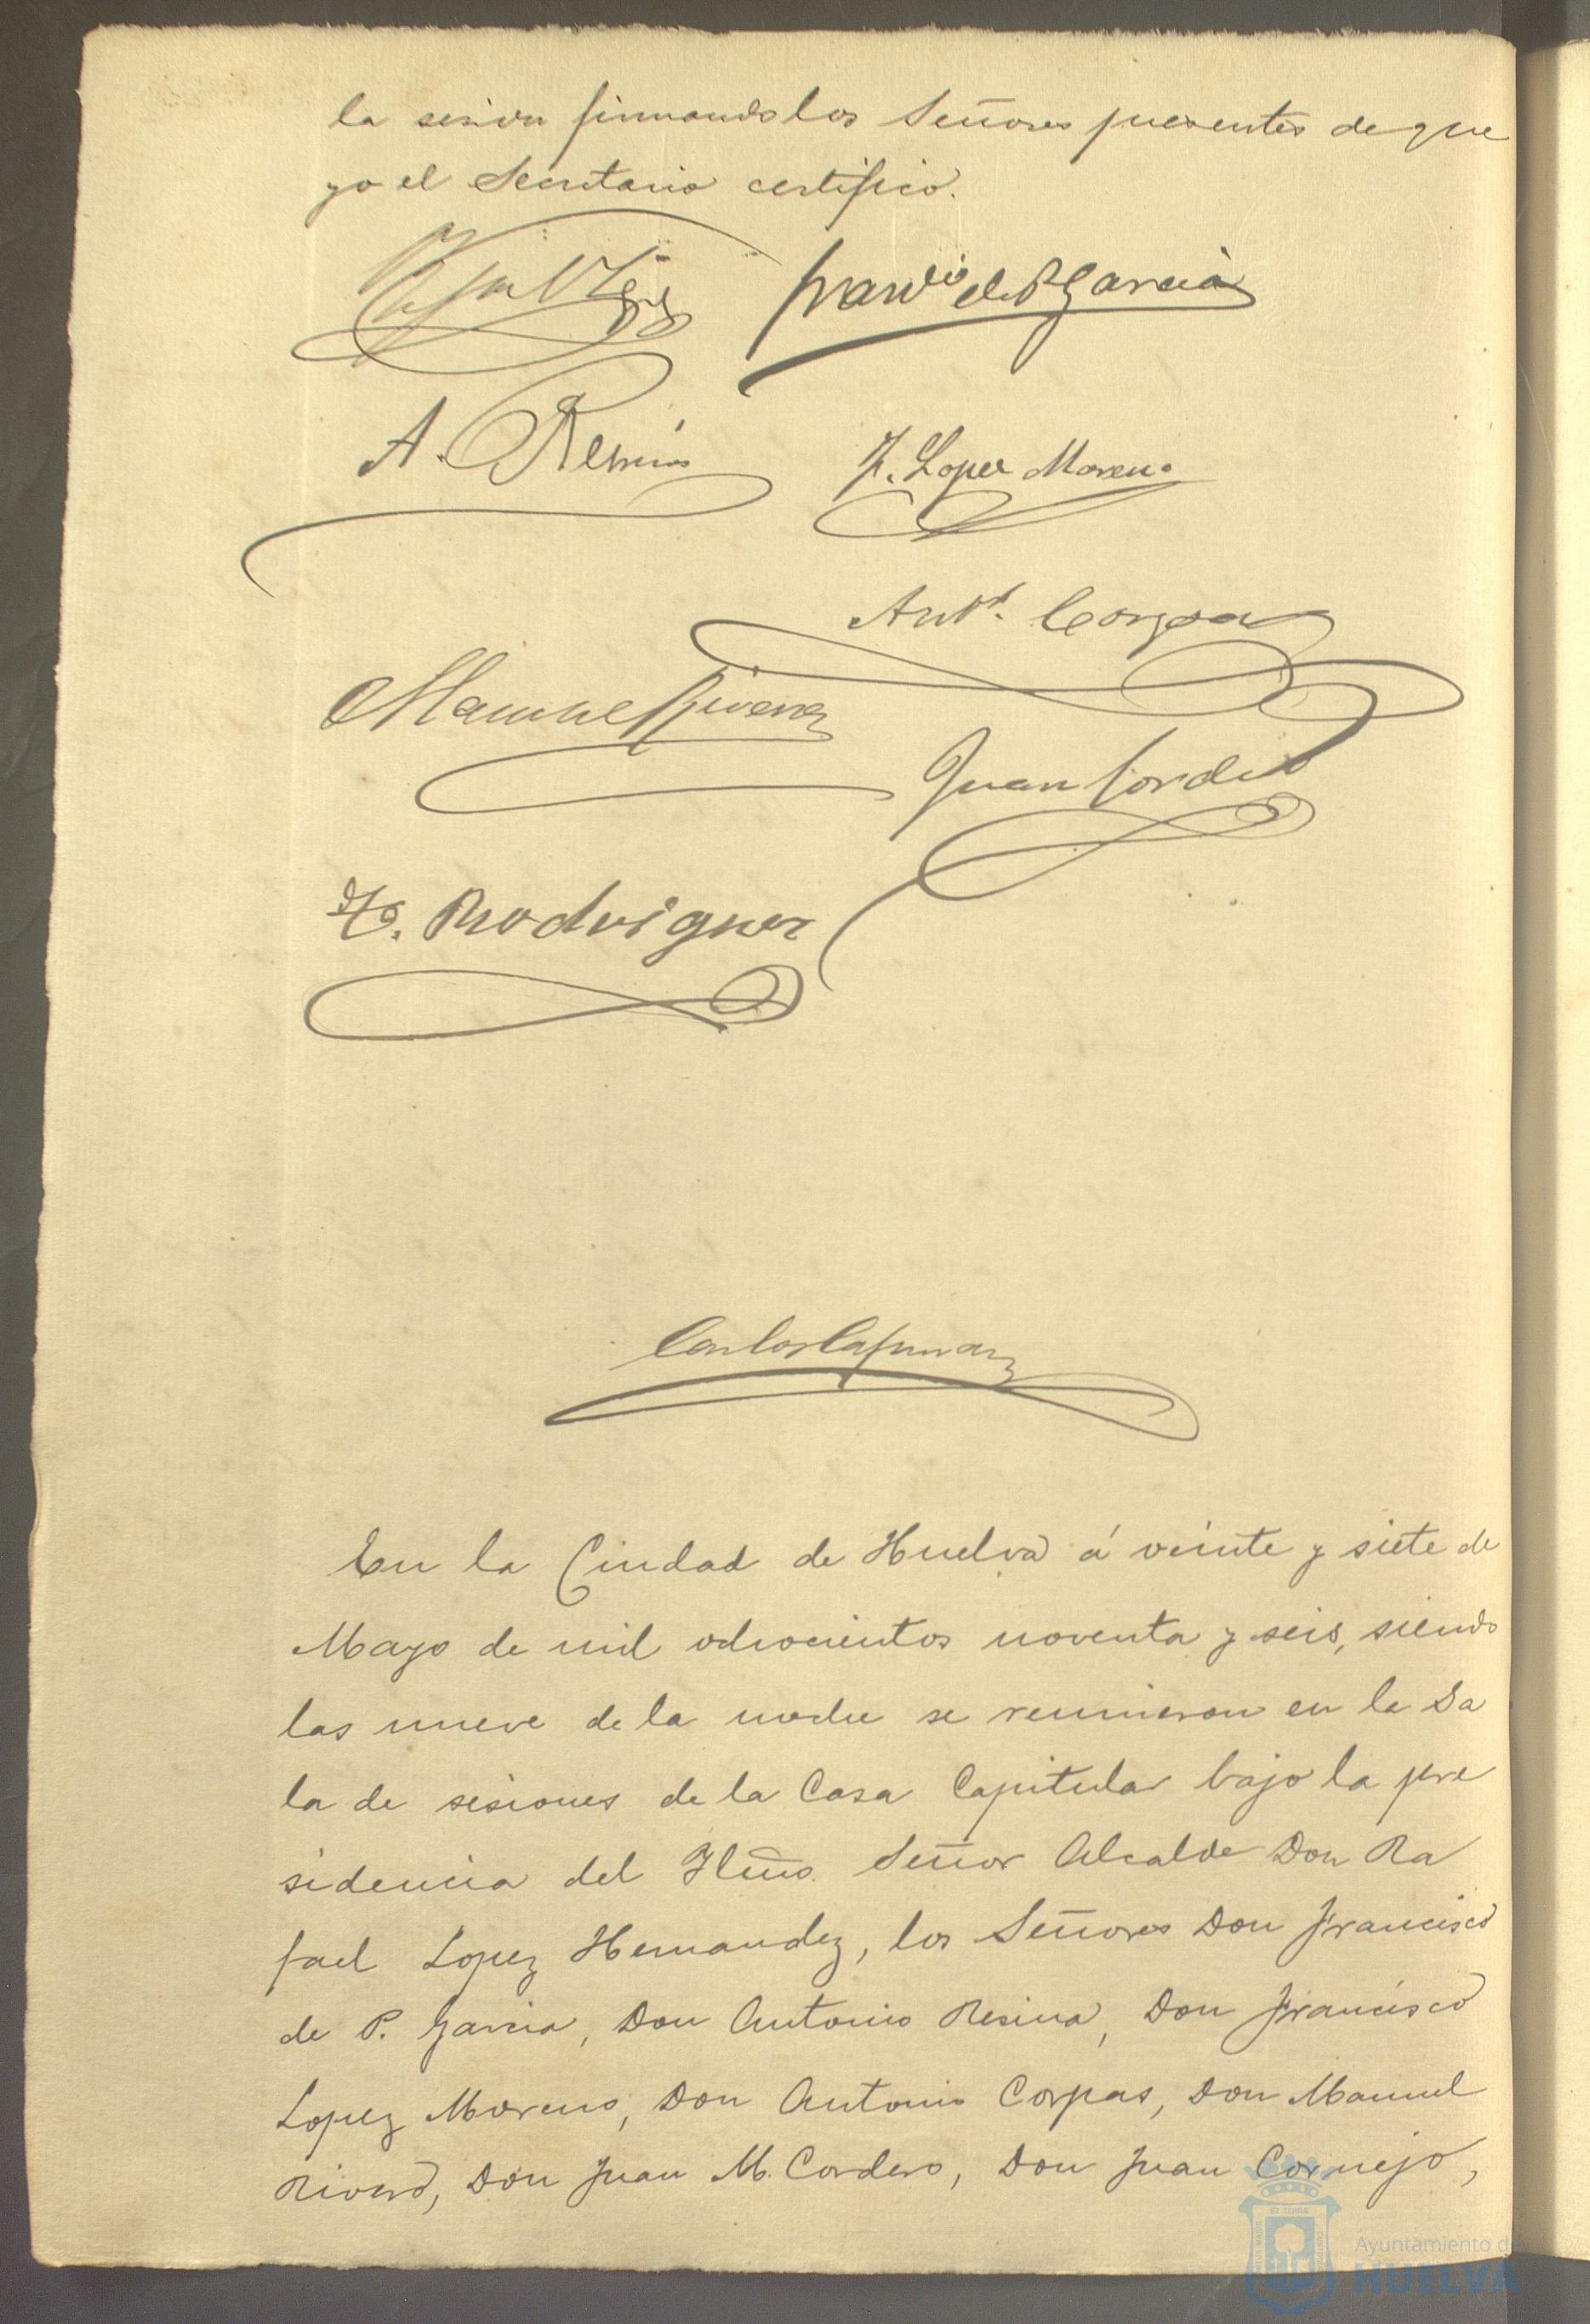 la sesion firmando los Señores presentes de que
yo el Secretario certifico.
Franco de P Garcia
A. Resina
F. Lopez Moreno
Anto. Corpas
Manuel Rivero
Juan Cordero
F. Rodriguez
Carlos
En la Ciudad de Huelva á veinte y siete de
Mayo de mil ochocientos noventa y seis, siendo
las nueve de la noche se reunieron en la Sa
la de sesiones de la Casa Capitular bajo la pre
sidencia del Iltmo. Señor Alcalde Don Ra
fael Lopez Hernandez, los Señores Don Francisco
de P. Garcia, Don Antonio Resina, Don Francisco
Lopez Moreno, Don Antonio Corpas, Don Manuel
Rivero, Don Juan M. Cordero, Don Juan Cornejo,
Ayuntamiento de
HUELVA